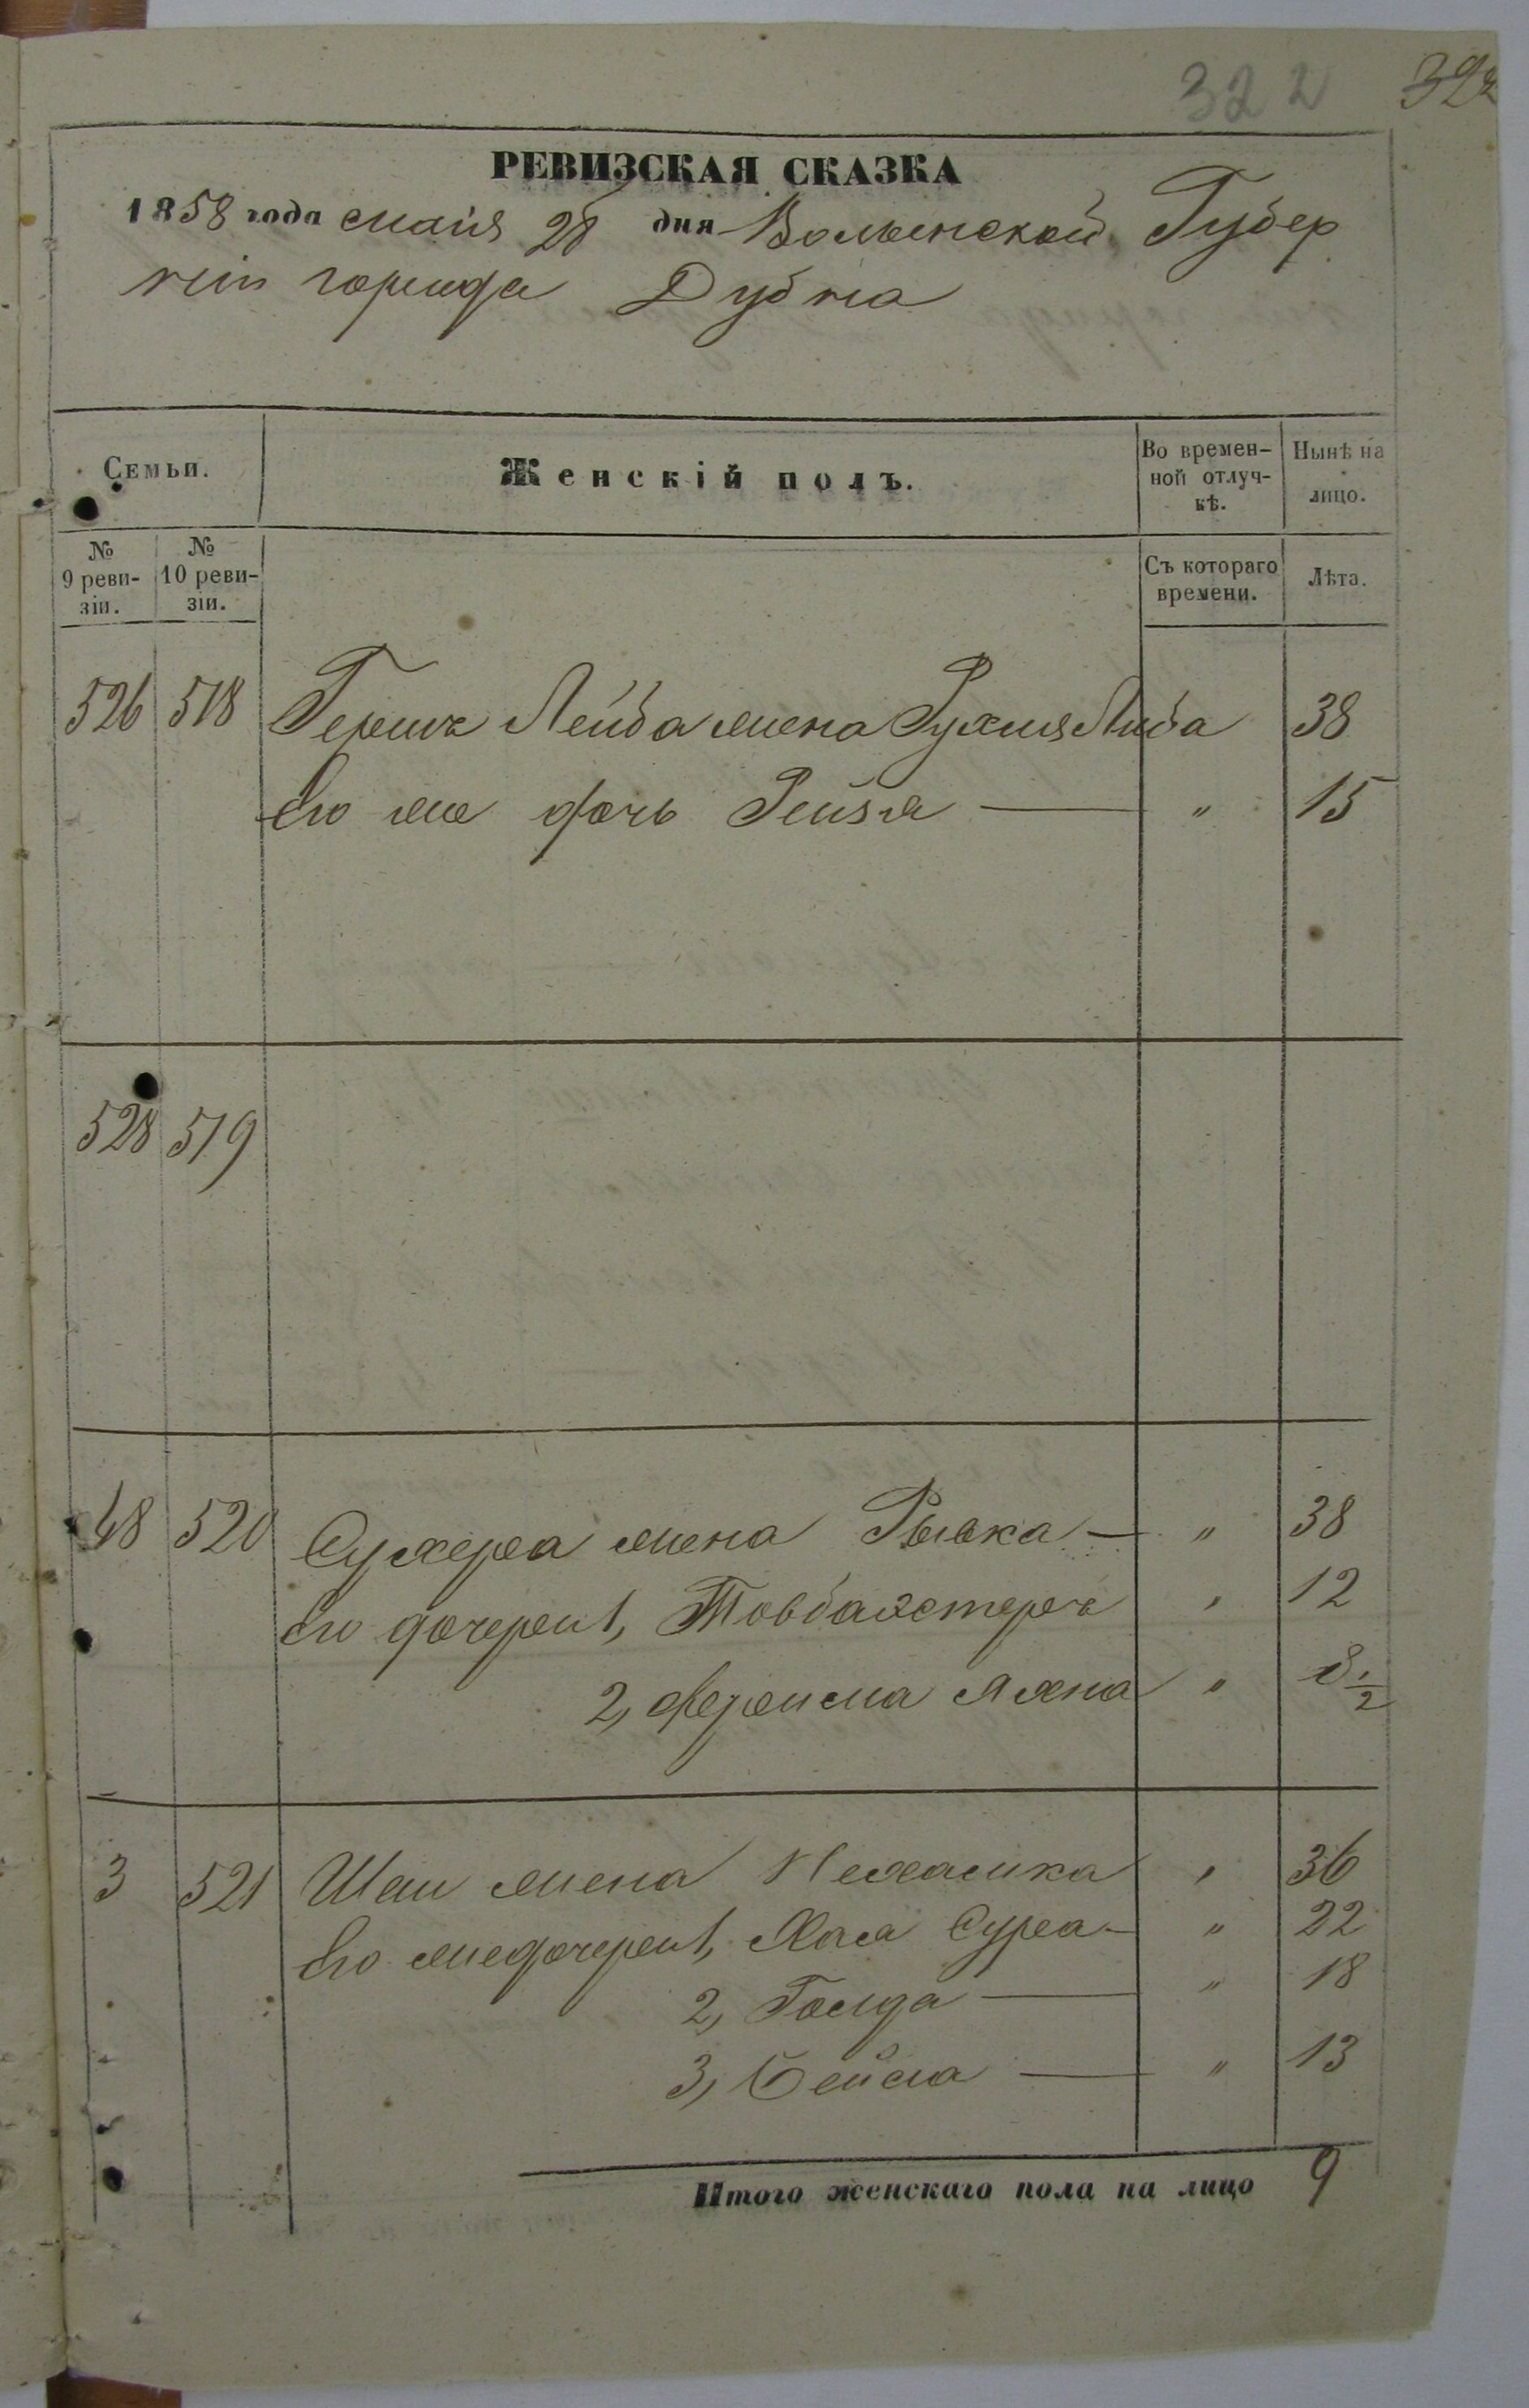 322 322
РЕВИЗСКАЯ СКАЗКА
1858 года маія 28 дня Волынской Губер
ніи города Дубна
Семьи. Женскій полъ. Во времен-ной отлуч-кѣ. Нынѣ на лицо.
№ 9 реви-зіи. № 10 реви-зіи. Съ котораго времени. Лѣта.
526 518 Гершъ Лейба жена Рухля Либа 38
Его же дочь Рейзя — " 15
528 519
48 520 Сухера жена Рывка — " 38
Его дочери 1, Товба Эстеръ " 12
2, Яхна " 8 1/2
3 521 Шаи жена Нехамка " 36
Его же дочери 1, Хая Сура — " 22
2, Голда — " 18
3, Бейла — " 13
Итого женскаго пола на лицо 9